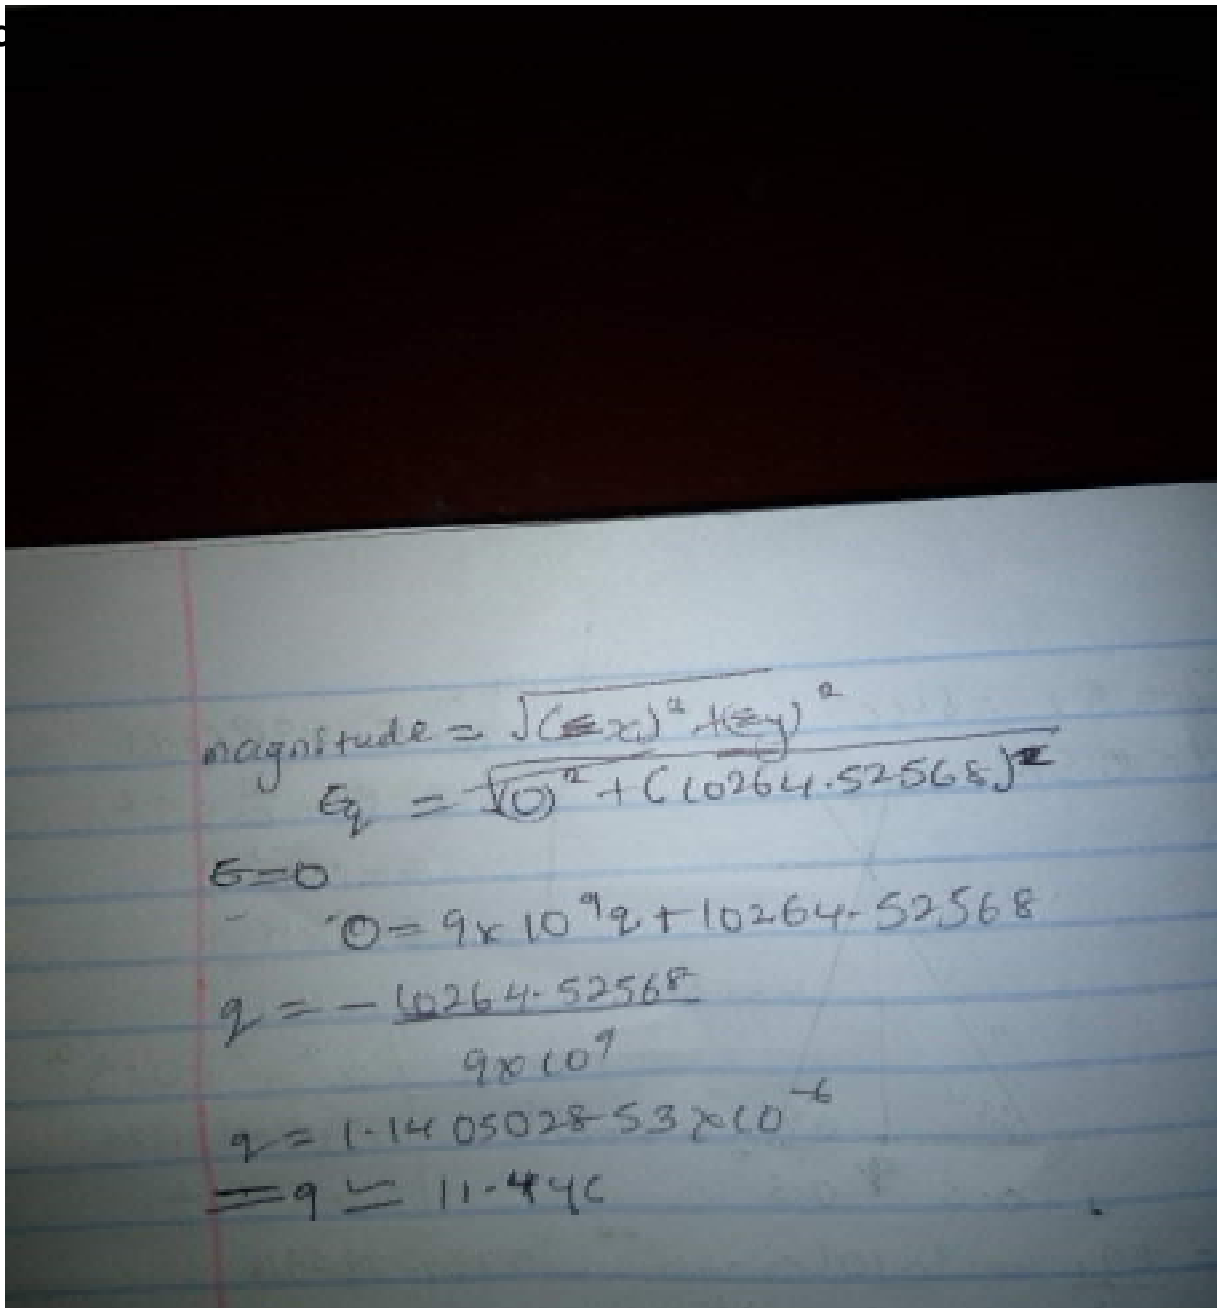 magnitude = √(Σx)² + (Σy)²
Eq = √(0)² + (10264.52568)²
E=0
0 = 9x10⁹q + 10264.52568
q = - 10264.52568
9x10⁹
q = 1.140502853x10⁻⁶
= q ≃ 11.44C